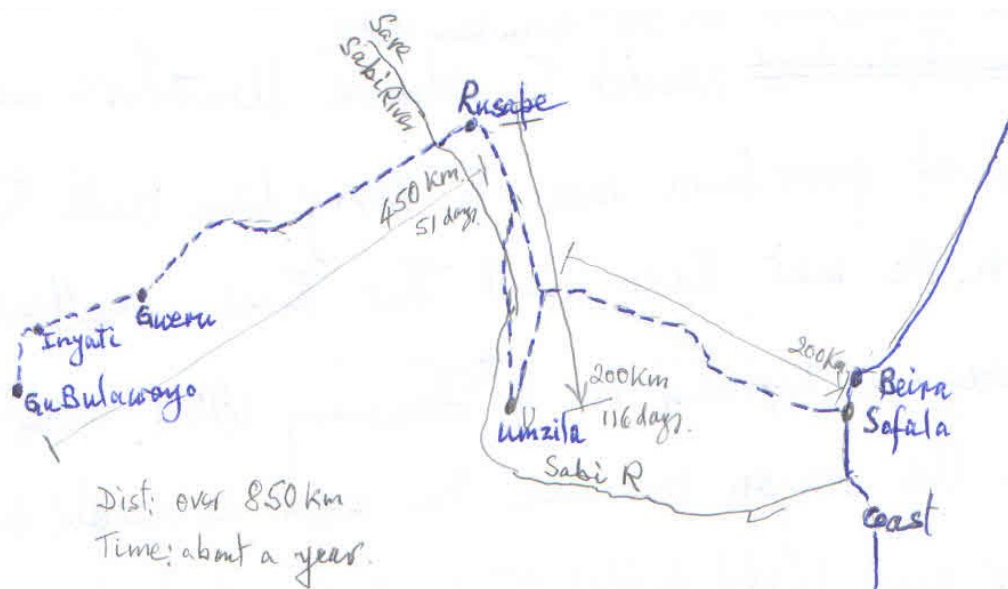 Save
Sabi River
Rusape
450 km
51 days.
Gweru
Inyati
GuBulawayo
200Km
116 days.
Umzila
Sabi R
200Km
Beira
Sofala
Coast
Dist: over 850 km
Time: about a year.